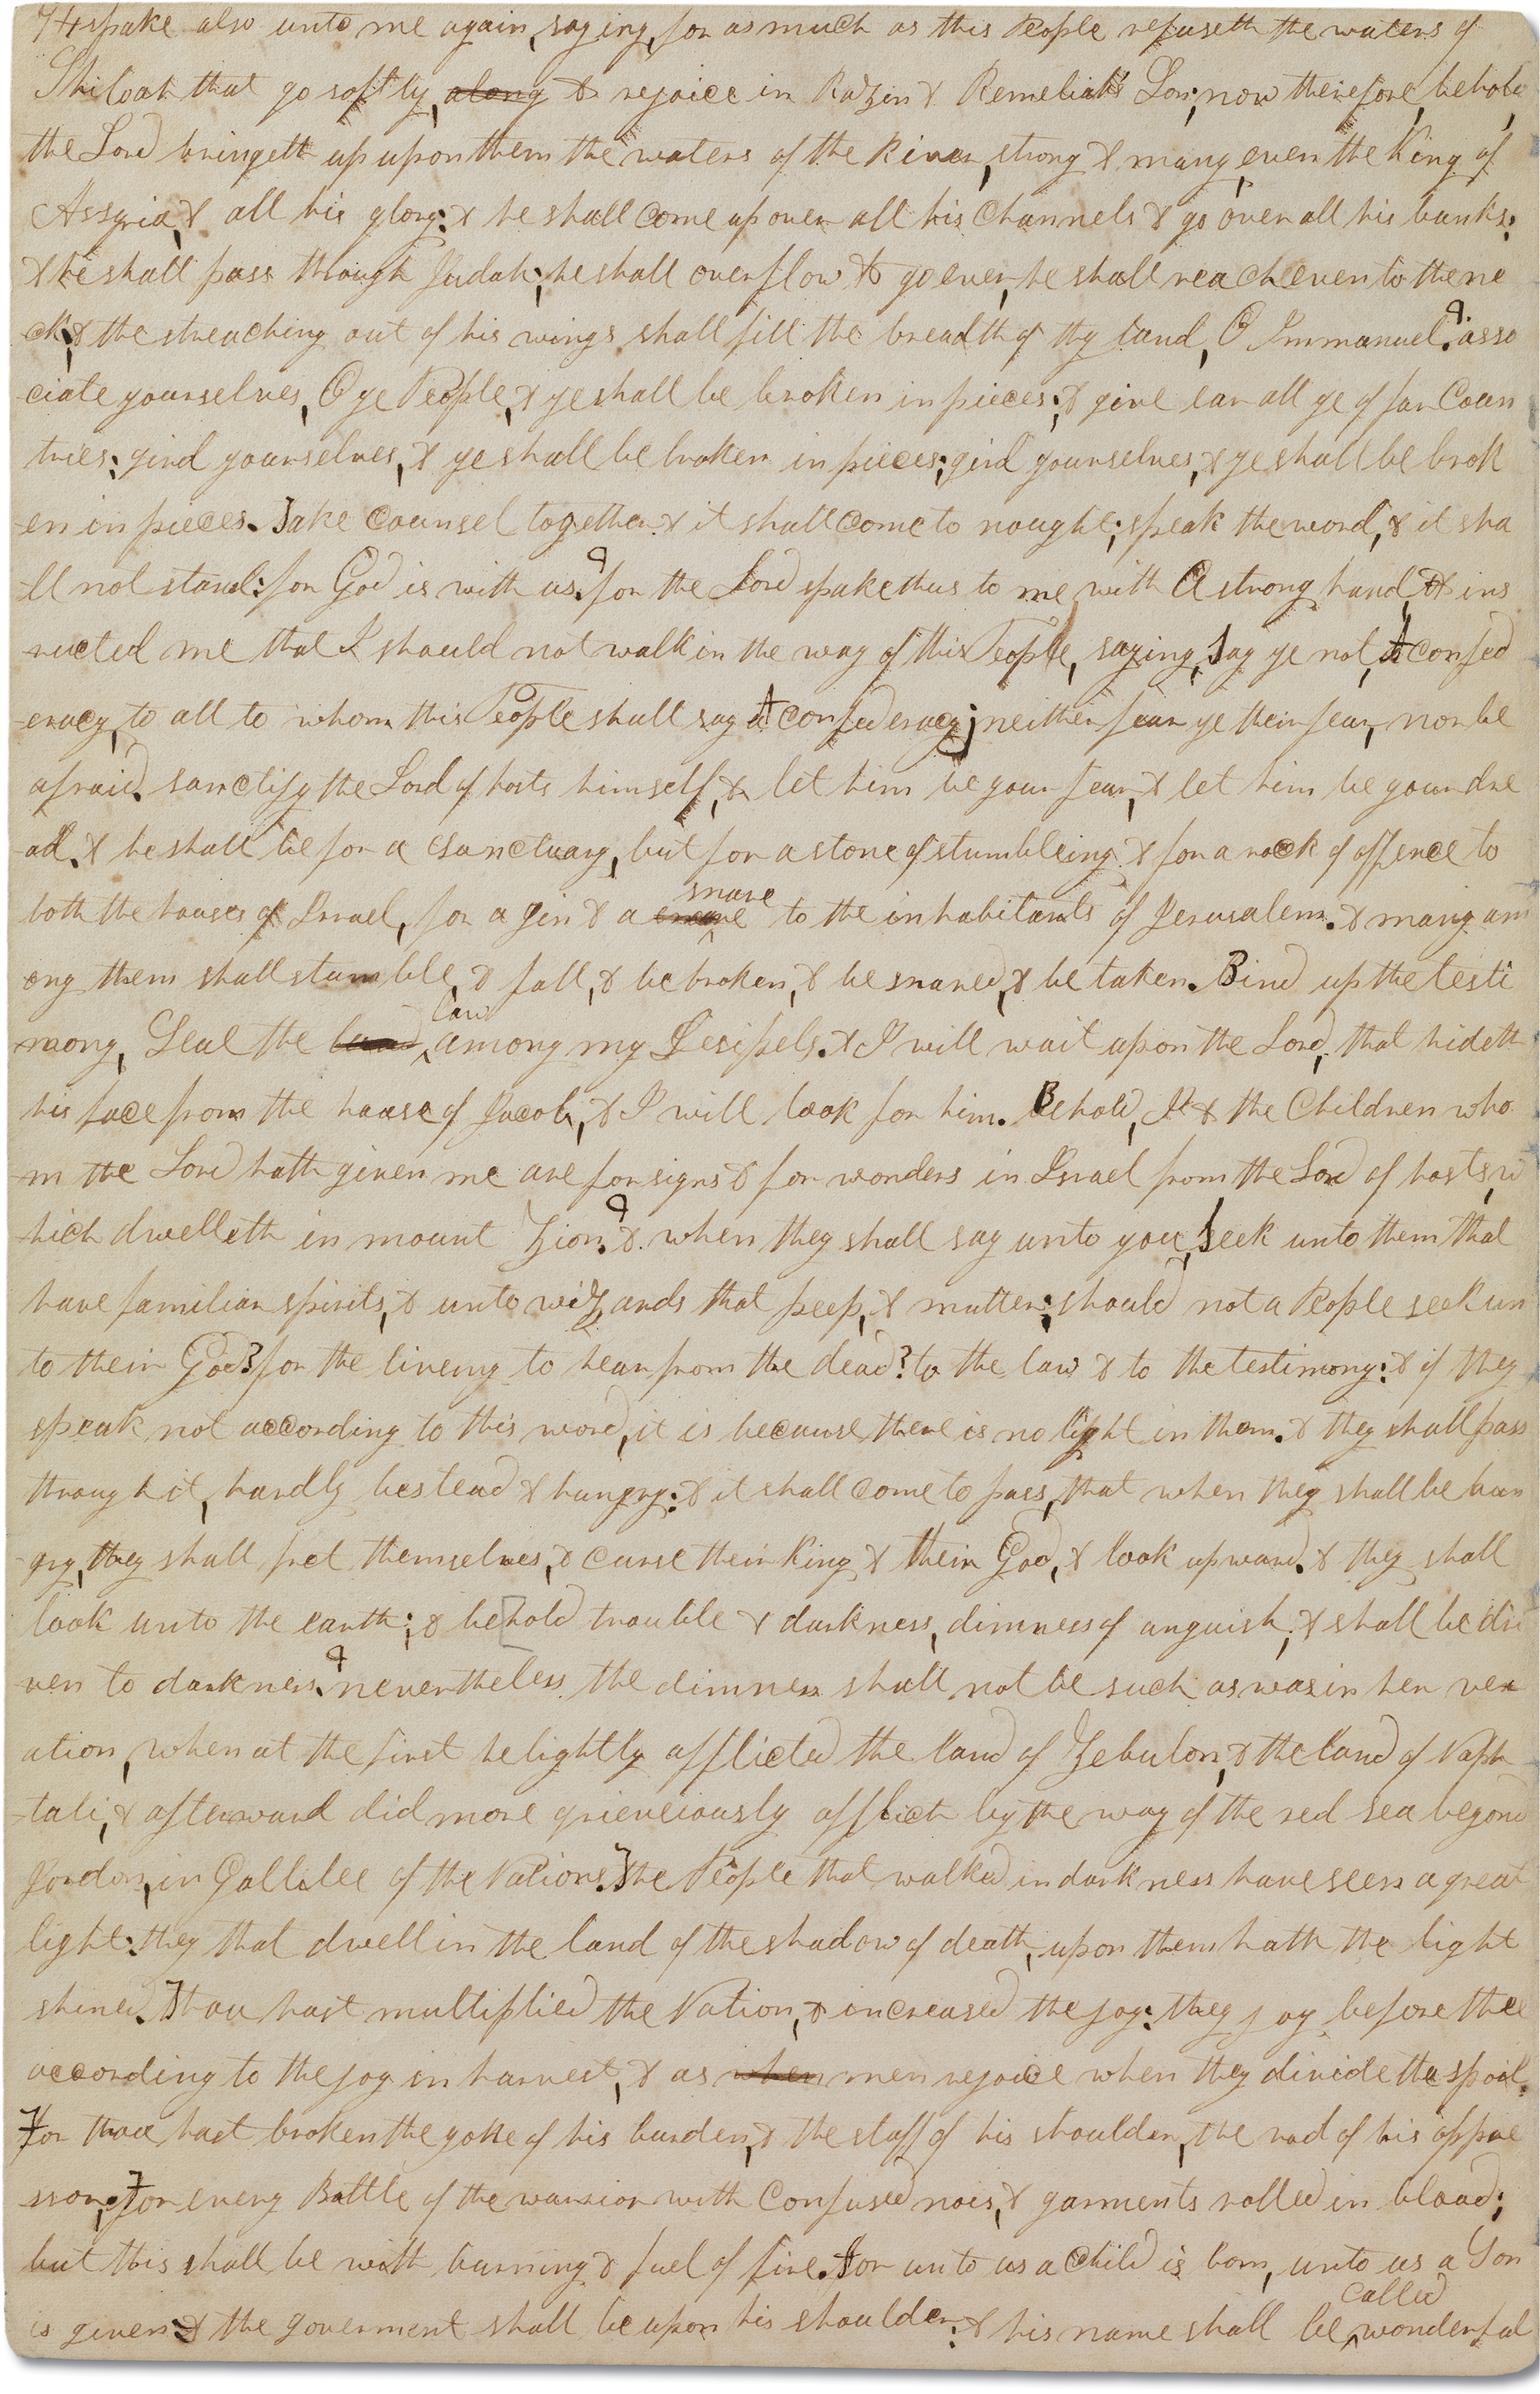 spake also unto me again, saying, for as much as this People refuseth the waters of
Shiloah that go softly, along & rejoice in Razin & Remeliah's Son; now therefore, behold,
the Lord bringeth up upon them the waters of the River, strong & many, even the King of
Assyria, & all his glory: & he shall come up over all his Channels & go over all his banks:
& he shall pass through Judah; he shall overflow & go over, he shall reach even to the ne
ck; & the streaching out of his wings shall fill the breadth of thy land, O Immanuel. asso
ciate yourselves, O ye People, & ye shall be broken in pieces; & give ear all ye of far Coun
tries: gird yourselves, & ye shall be broken in pieces; gird yourselves, & ye shall be brok
en in pieces. Take Counsel together & it shall come to nought; speak the word, & it sha
ll not stand: for God is with us. for the Lord spake thus to me with A strong hand, & ins
ructed me that I should not walk in the way of this People, saying, Say ye not, A confed
eracy, to all to whom this People shall say A confederacy; neither fear ye their fear, nor be
afraid. sanctify the Lord of hosts himself, & let him be your fear, & let him be your dre
ad. & he shall be for a sanctuary, but for a stone of stumbleing & for a rock of offence to
both the houses of Israel, for a gin & a snare to the inhabitants of Jerusalem. & many am
ong them shall stumble, & fall, & be broken, & be snared, & be taken. Bind up the testi
mony, Seal the law among my Desipels. & I will wait upon the Lord, that hideth
his face from the house of Jacob, & I will look for him. Behold, I & the Children who
m the Lord hath given me are for signs & for wonders in Israel from the Lord of hosts, w
hich dwelleth in mount Zion. & when they shall say unto you, Seek unto them that
have familiar spirits, & unto wizards that peep, & mutter: should not a People seek un
to their God? for the liveing to hear from the dead? to the law & to the testimony: & if they
speak not according to this word, it is because there is no light in them. & they shall pass
through it, hardly bestead & hungry: & it shall come to pass, that when they shall be hun
gry, they shall fret themselves, & curse their King & their God, & look upward. & they shall
look unto the earth; & behold trouble & darkness, dimness of anguish; & shall be dri
ven to darkness. nevertheless the dimness shall not be such as was in her vex
ation, when at the first he lightly afflicted the land of Zebulon, & the land of Naph
tali, & afterward did more grieveiously afflict by the way of the red sea beyond
Jordon, in Gallilee of the Nations. The People that walked in darkness have seen a great
light: they that dwell in the land of the shadow of death, upon them hath the light
shined. Thou hast multiplied the Nation, & increased the joy: they joy before thee
according to the joy in harvest, & as when men rejoice when they divide the spoil.
For thou hast broken the yoke of his burden, & the staff of his shoulder, the rod of his oppre
ssor, For every Battle of the warrior with Confused nois, & garments rolled in blood;
but this shall be with burning & fuel of fire. For unto us a Child is born, unto us a Son
is given: & the goverment shall be upon his shoulder: & his name shall be called wonderful